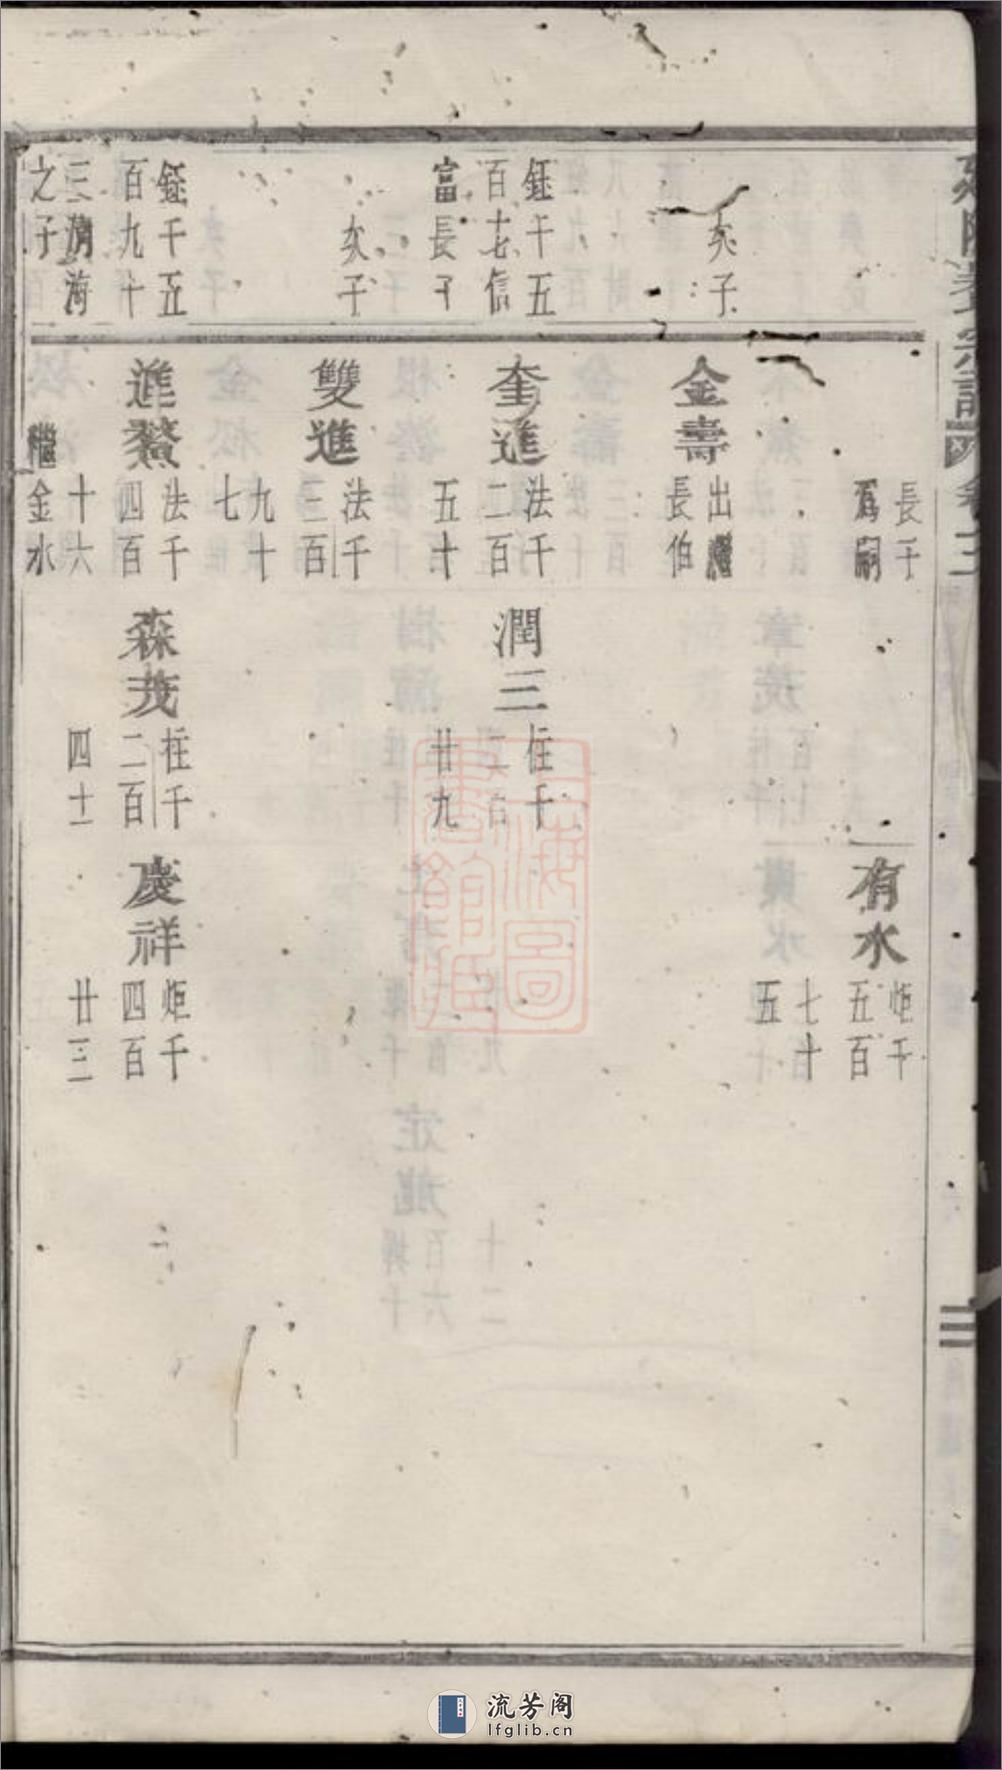 長子
爲嗣
有水
炬千
五百
七十
五
次子
金壽
出繼
長伯
鉦千五
百七信
富長子
奎進
法千
二百
五十
潤三
柱千
二百
廿九
次子
雙進
法千
三百
九十
七
鉦千五
百九十
三清海
之子
進鰲
法千
四百
十六
繼
金水
森茂
柱千
二百
四十
慶祥
炬千
四百
廿三
上海圖書館藏
流芳阁
lfglib.cn